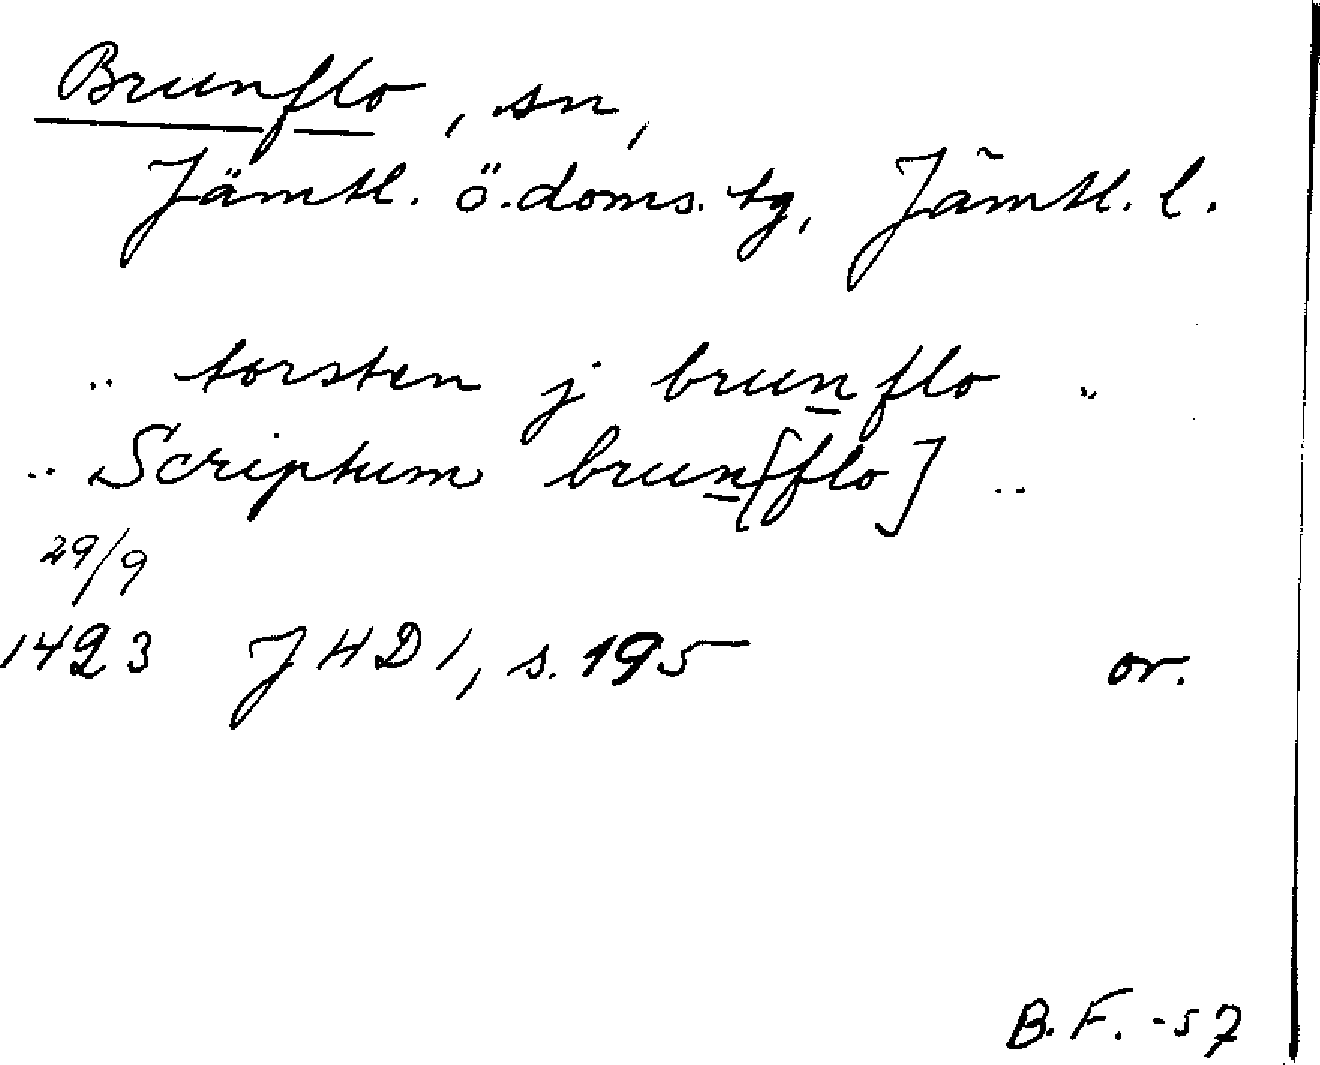 Brunflo, sn,
Jämtl. ö. doms. tg, Jämtl. l.
.. torsten j brunflo ..
.. Scriptum brun[flo] ..
29/9
1423 JHD 1, s. 195 or.
B.F. -57